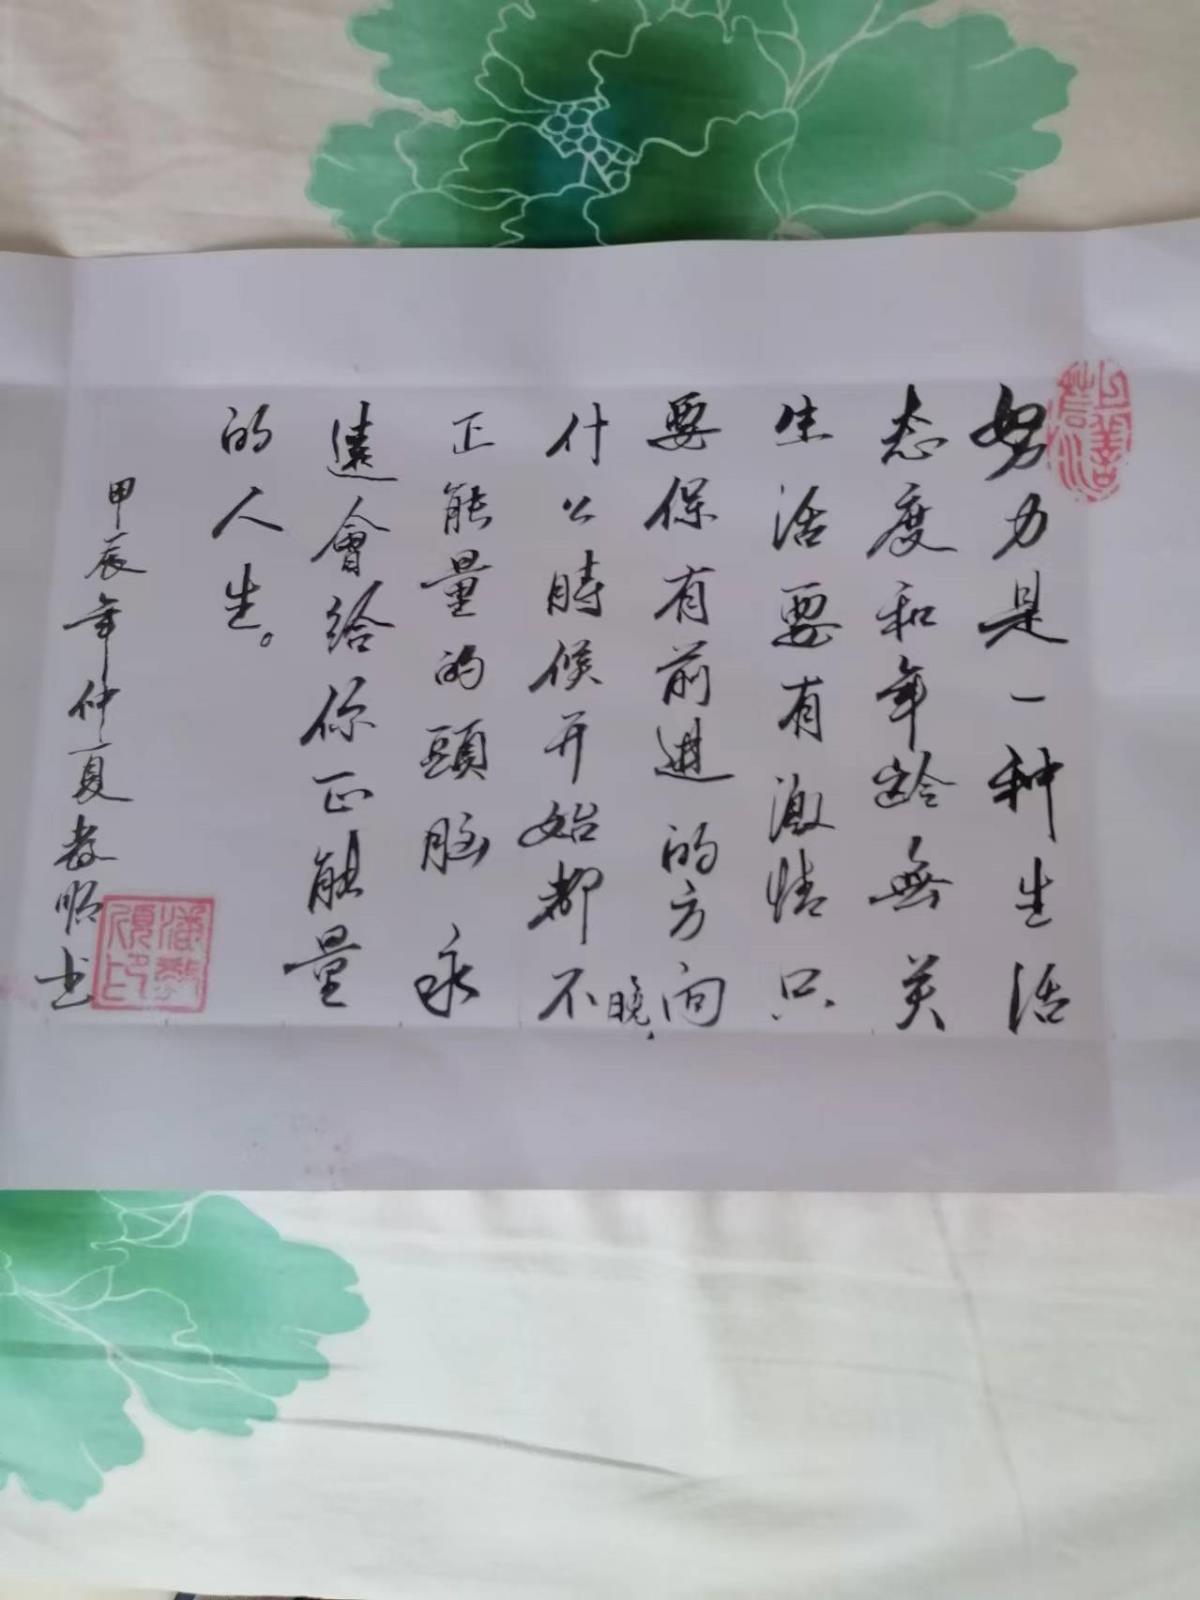 努力是一种生活
态度和年龄無关
生活要有激情只
要保有前进的方向
什么時候开始都不
晚，
正能量的頭脑永
遠會给你正能量
的人生。
甲辰年仲夏孝顺书
上善若水